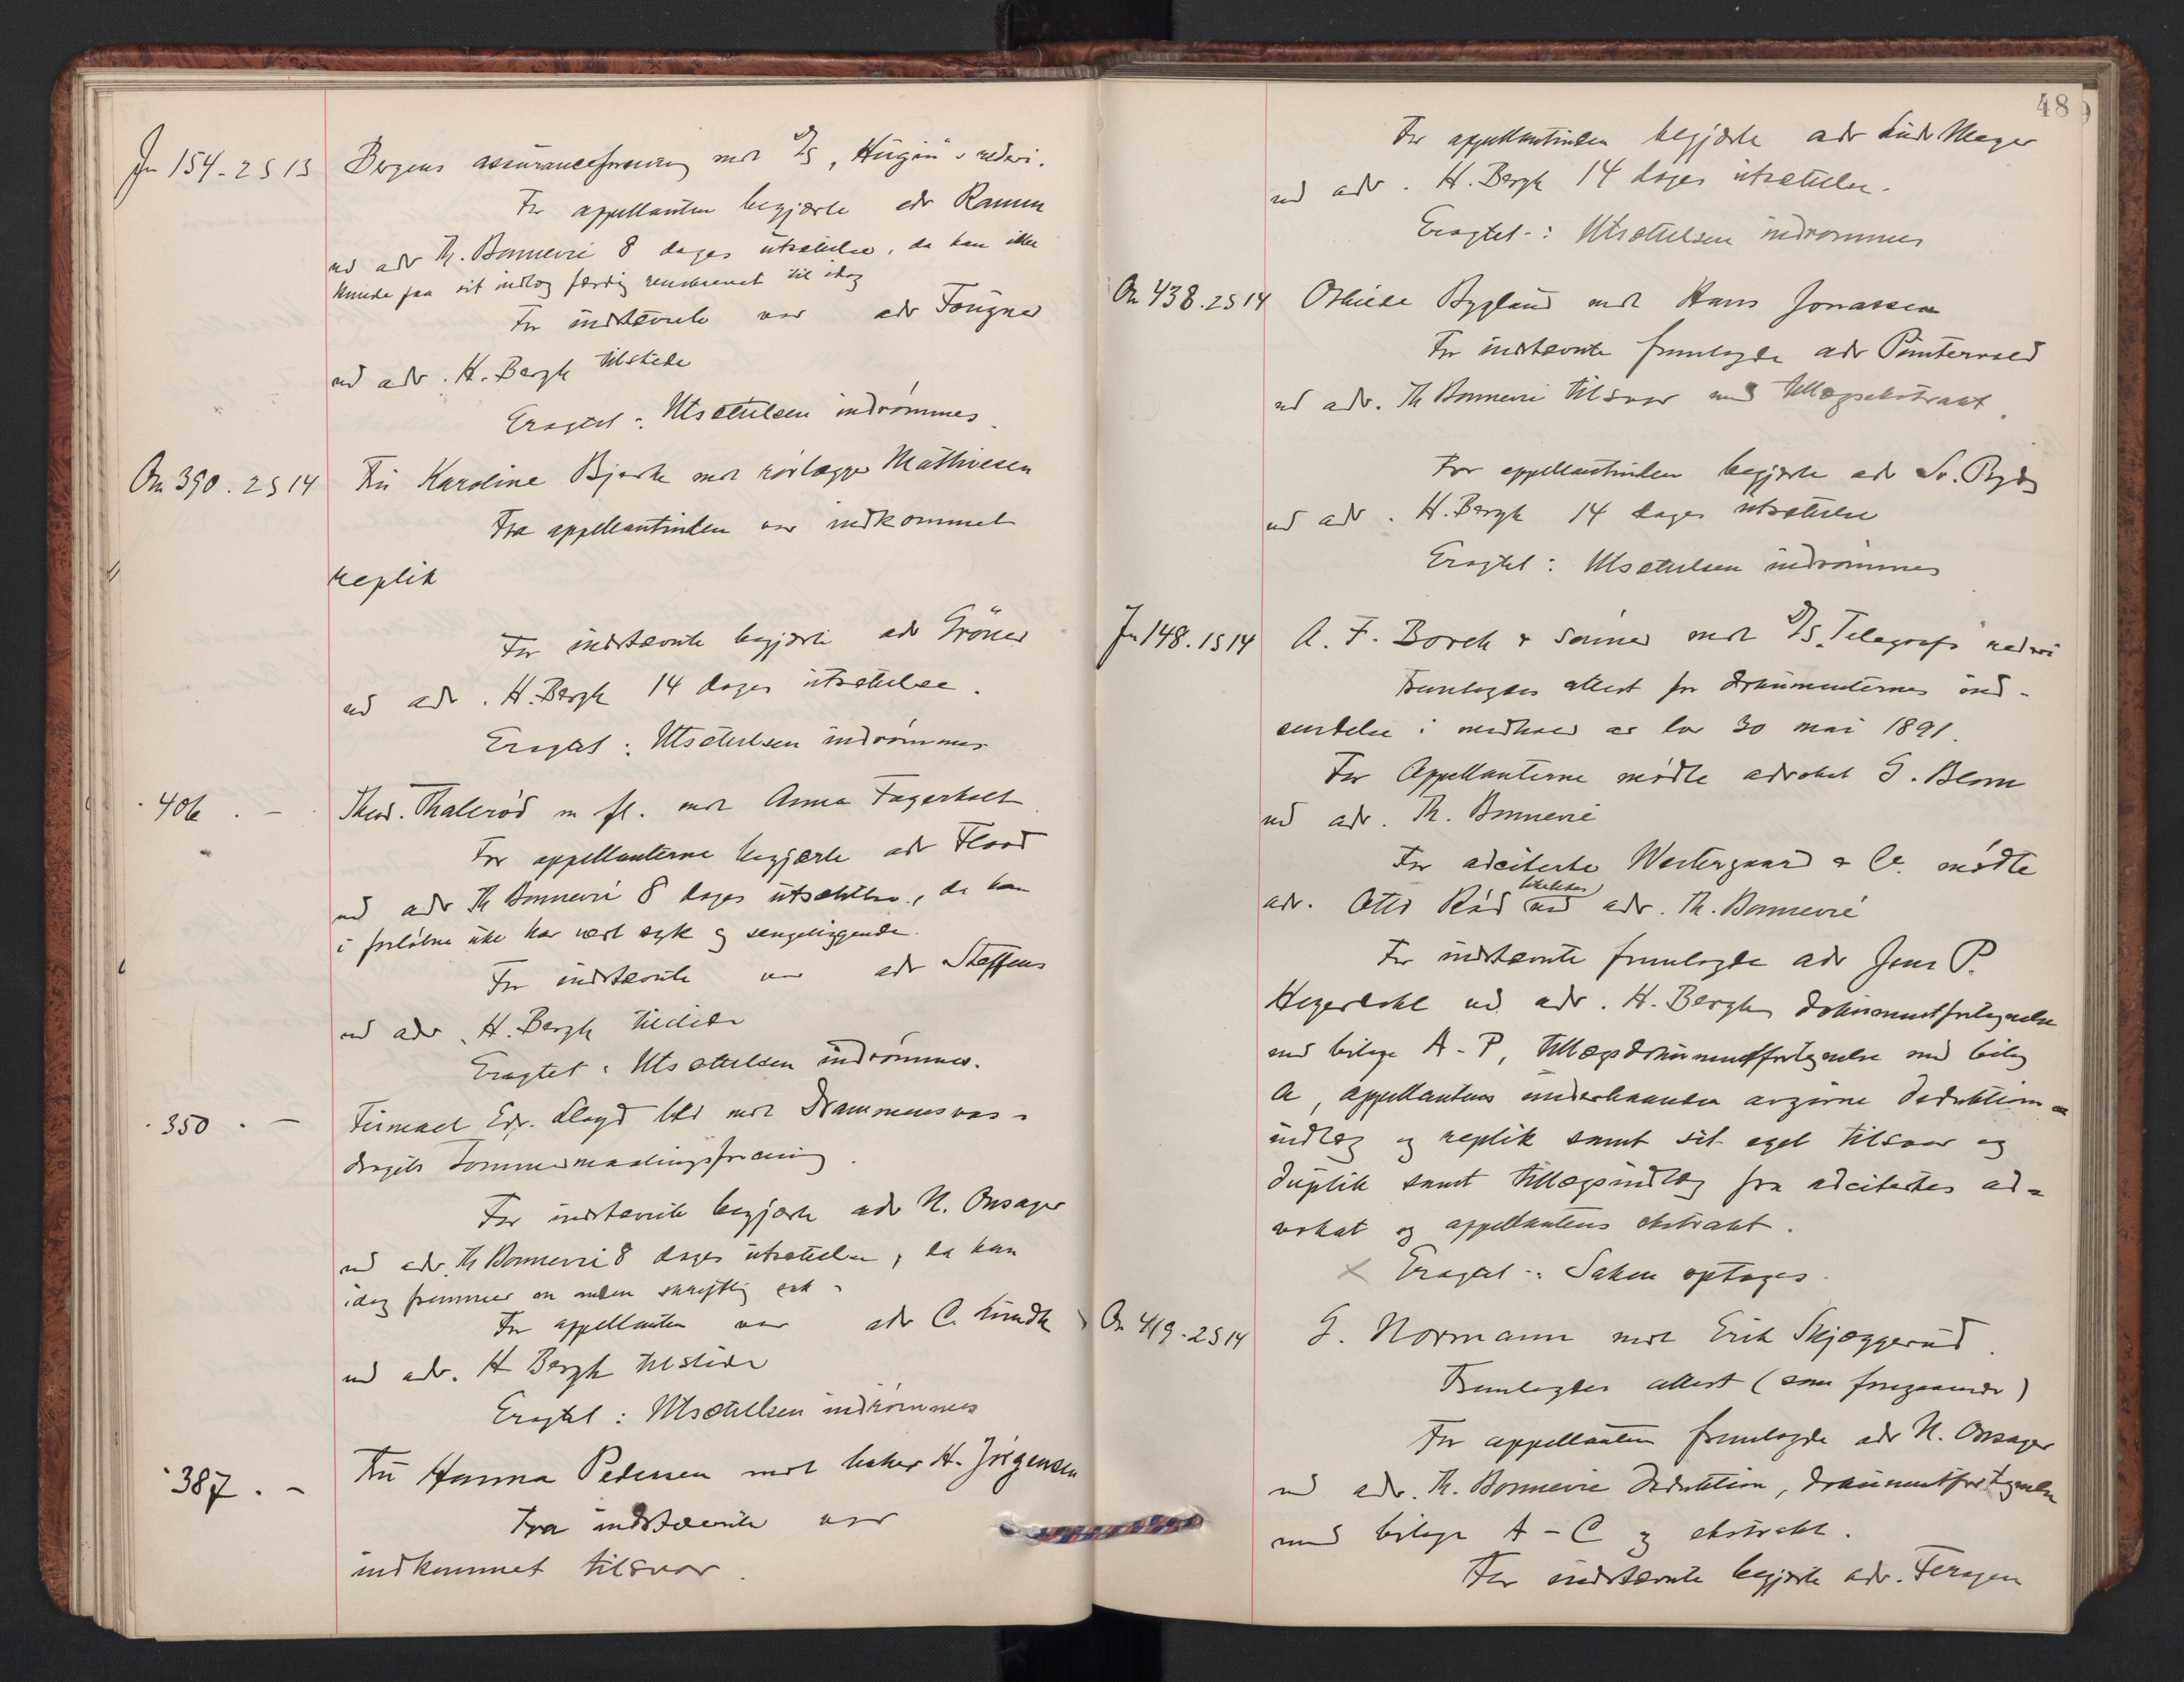 Jn 154. 2 S 13 Bergens assuranceforening mot D/S „Hugin"s rederi.
For appellanten begjærte adv Ramm
ved adv Th. Bonnevie 8 dages utsættelse, da han ikke
kunde faa sit indlæg færdig renskrevet til idag
For indstævnte var adv Fougner
ved adv. H. Bergh tilstede
Eragtet: Utsættelsen indrømmes.
On 390. 2 S 14 Fru Karoline Bjerke mot rørlægger Mathiesen
Fra appellantinden var indkommet
replik
For indstævnte begjærte adv Gröner
ved adv. H. Bergh 14 dages utsættelse.
Eragtet: Utsættelsen indrømmes
406. - Theod. Thalerød m fl. mot Anna Fagerholt
For appellanterne begjærte adv Flood
ved adv Th Bonnevie 8 dages utsættelse, da han
i forløbne uke har vært syk og sengeliggende.
For indstævnte var adv Steffens
ved adv. H. Bergh tilstede
Eragtet: Utsættelsen indrømmes.
350. - Firmaet Edv. Lloyd Ltd mot Drammensvas-
dragets Tømmermaalingsforening.
For indstævnte begjærte adv N. Onsager
ved adv. Th Bonnevie 8 dages utsættelse, da han
idag fremmer en anden skriftlig sak.
For appellanten var adv C. Lundh
ved adv. H Bergh tilstede
Eragtet: Utsættelsen indrømmes
387. - Fru Hanna Pedersen mot baker H. Jörgensen
Fra indstævnte var
indkommet tilsvar.
48
For appellantinden begjærte adv Lude Meyer
ved adv. H. Bergh 14 dages utsættelse.
Eragtet: Utsættelsen indrømmes
On 438. 2 S 14 Othilde Bygland mot Hans Jonassen
For indstævnte fremlagde adv Püntervold
ved adv. Th Bonnevie tilsvar med tillægsekstrakt.
For appellantinden begjærte adv Sv.
ved adv. H. Bergh 14 dages utsættelse
Eragtet: Utsættelsen indrømmes
Jn 148. 1 S 14 A. F. Borch & Sønner mot D/S „Telegraf"s rederi
Fremlagdes attest for dokumenternes ind-
sendelse i medhold av lov 30 mai 1891.
For Appellanterne mødte advokat G. Blom
ved adv. Th. Bonnevie
For adciterte Westergaard & Co. mødte
adv. Otto Röd likeledes ved adv. Th. Bonnevie
For indstævnte fremlagde adv Jens P.
Heyerdahl ved adv. H. Bergh dokumentfortegnelse
med bilage A-P, tillægsdokumentfortegnelse med bilag
A, appellantens underhaanden avgivne deduktions-
indlæg og replik samt sit eget tilsvar og
duplik samt tillægsindlæg fra adcitertes ad-
vokat og appellantens ekstrakt.
x Eragtet: Saken optages.
On 419. 2 S 14 G. Normann mot Erik Skjæggerud.
Fremlagdes attest (som foregaaende)
For appellanten fremlagde adv N. Onsager
ved adv. Th. Bonnevie deduktion, dokumentfortegnelse
med bilage A-C og ekstrakt.
For indstævnte begjærte adv. Feragen